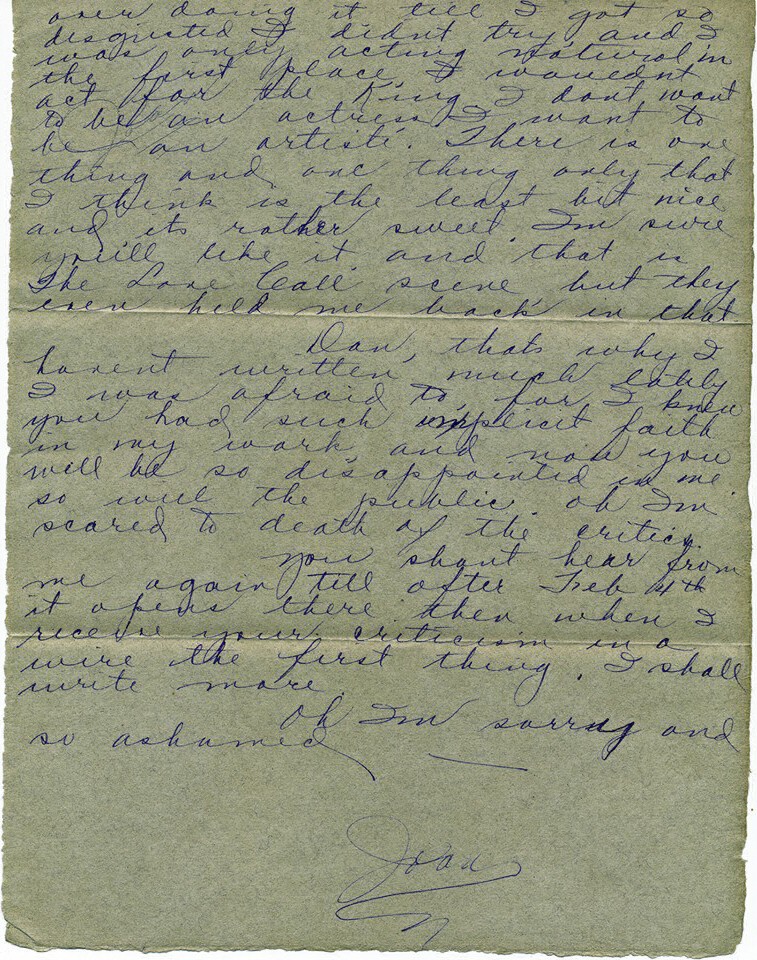 over doing it till I got so
disgusted I didnt try and I
was only acting natural in
the first place, I wouldnt
act for the King, I dont want
to be an actress I want to
be an artiste. There is one
thing and one thing only that
I think is the least bit nice
and its rather sweet. Im sure
youill like it and that is
The Love Call scene but they
even held me back in that
Dan, thats why I
havent written much lately
I was afraid to, for I knew
you had such implicit faith
in my work and now you
will be so disappointed in me
so will the public. oh Im
scared to death of the critics.
You shant hear from
me again till after Feb 4th
it opens there then when I
receive your criticism in a
wire the first thing, I shall
write more.
Oh Im sorry and
so ashamed
Joan